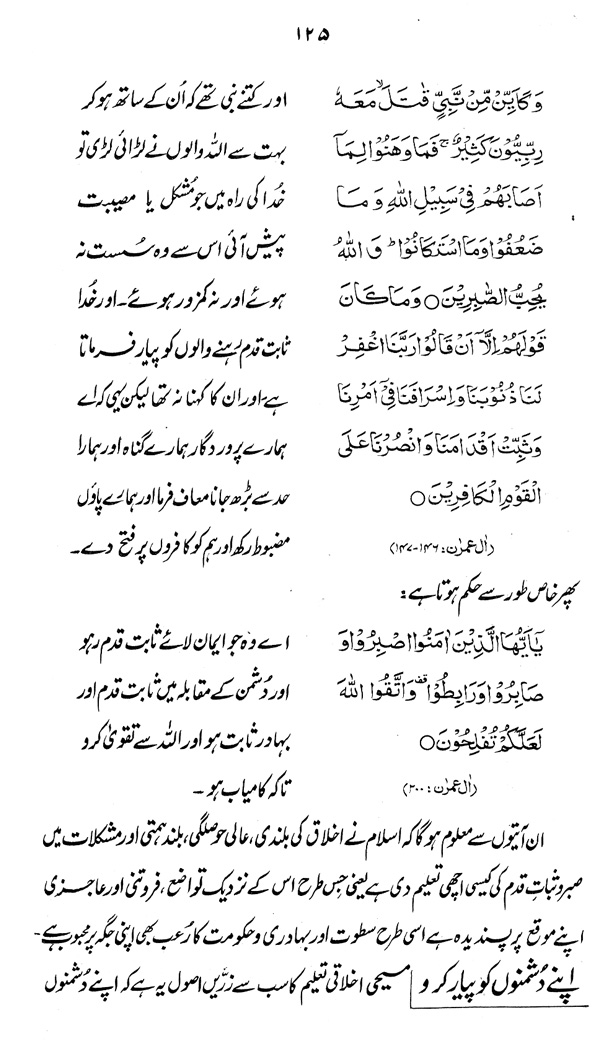 ۱۲۵
وَكَاَيِّنْ مِّنْ نَّبِيٍّ قٰتَلَ مَعَهٗ
رِبِّيُّوْنَ كَثِيْرٌ فَمَا وَهَنُوْا لِمَآ
اَصَابَهُمْ فِيْ سَبِيْلِ اللهِ وَمَا
ضَعُفُوْا وَمَا اسْتَكَانُوْا ؕ وَ اللهُ
يُحِبُّ الصّٰبِرِيْنَ○ وَمَا كَانَ
قَوْلَهُمْ اِلَّآ اَنْ قَالُوْا رَبَّنَا اغْفِرْ
لَنَا ذُنُوْبَنَا وَاِسْرَافَنَا فِيْٓ اَمْرِنَا
وَثَبِّتْ اَقْدَامَنَا وَانْصُرْنَا عَلَى
الْقَوْمِ الْكَافِرِيْنَ○
(اٰل عمرٰن: ۱۴۶-۱۴۷)
اور کتنے نبی تھے کہ اُن کے ساتھ ہو کر
بہت سے اللہ والوں نے لڑائی لڑی تو
خُدا کی راہ میں جو مُشکل یا مصیبت
پیش آئی اس سے وہ سُست نہ
ہوئے اور نہ کمزور ہوئے۔ اور خُدا
ثابت قدم رہنے والوں کو پیار فرماتا
ہے، اور ان کا کہنا نہ تھا لیکن یہی کہ اے
ہمارے پروردگار ہمارے گناہ اور ہمارا
حد سے بڑھ جانا معاف فرما اور ہمارے پاؤں
مضبوط رکھ اور ہم کو کافروں پر فتح دے۔
پھر خاص طور سے حکم ہوتا ہے:
يٰٓاَيُّهَا الَّذِيْنَ اٰمَنُوا اصْبِرُوْا وَ
صَابِرُوْا وَرَابِطُوْا وَاتَّقُوا اللهَ
لَعَلَّكُمْ تُفْلِحُوْنَ○
(اٰل عمرٰن: ۲۰۰)
اے وہ جو ایمان لائے ثابت قدم رہو
اور دُشمن کے مقابلہ میں ثابت قدم اور
بہادر ثابت ہو اور اللہ سے تقویٰ کرو
تاکہ کامیاب ہو۔
ان آیتوں سے معلوم ہوگا کہ اسلام نے اخلاق کی بلندی، عالی حوصلگی، بلند ہمتی اور مشکلات میں
صبر و ثباتِ قدم کی کیسی اچھی تعلیم دی ہے یعنی جس طرح اس کے نزدیک تواضع، فروتنی اور عاجزی
اپنے موقع پر پسندیدہ ہے اسی طرح سطوت اور بہادری و حکومت کا رُعب بھی اپنی جگہ پر محبوب ہے۔
اپنے دُشمنوں کو پیار کرو مسیحی اخلاقی تعلیم کا سب سے زرّیں اصول یہ ہے کہ اپنے دُشمنوں